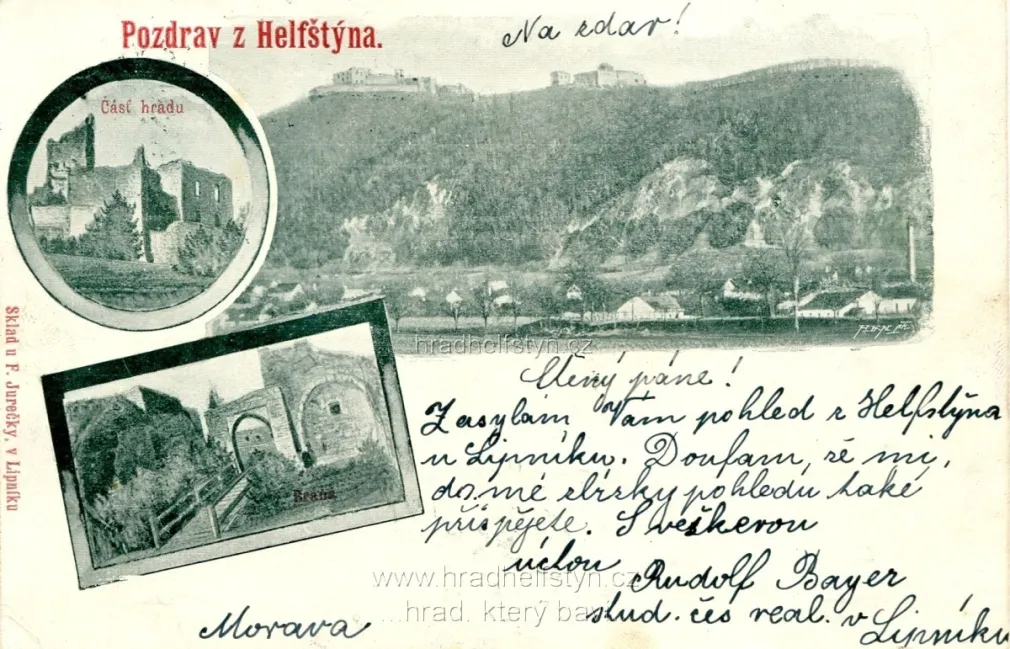 Pozdrav z Helfštýna.
Na zdar!
Část hradu
hradhelfstyn.cz
Ctěný pane!
Zasylám Vám pohled z Helfstýna
u Lipníku. Doufam, že mi,
do mé sbírky pohledu také
přispějete. S veškerou
úctou
Rudolf Bayer
stud. čes real. v Lipníku
Morava
Brána
Sklad u F. Jurečky, v Lipníku
www.hradhelfstyn.cz
...hrad, který baví